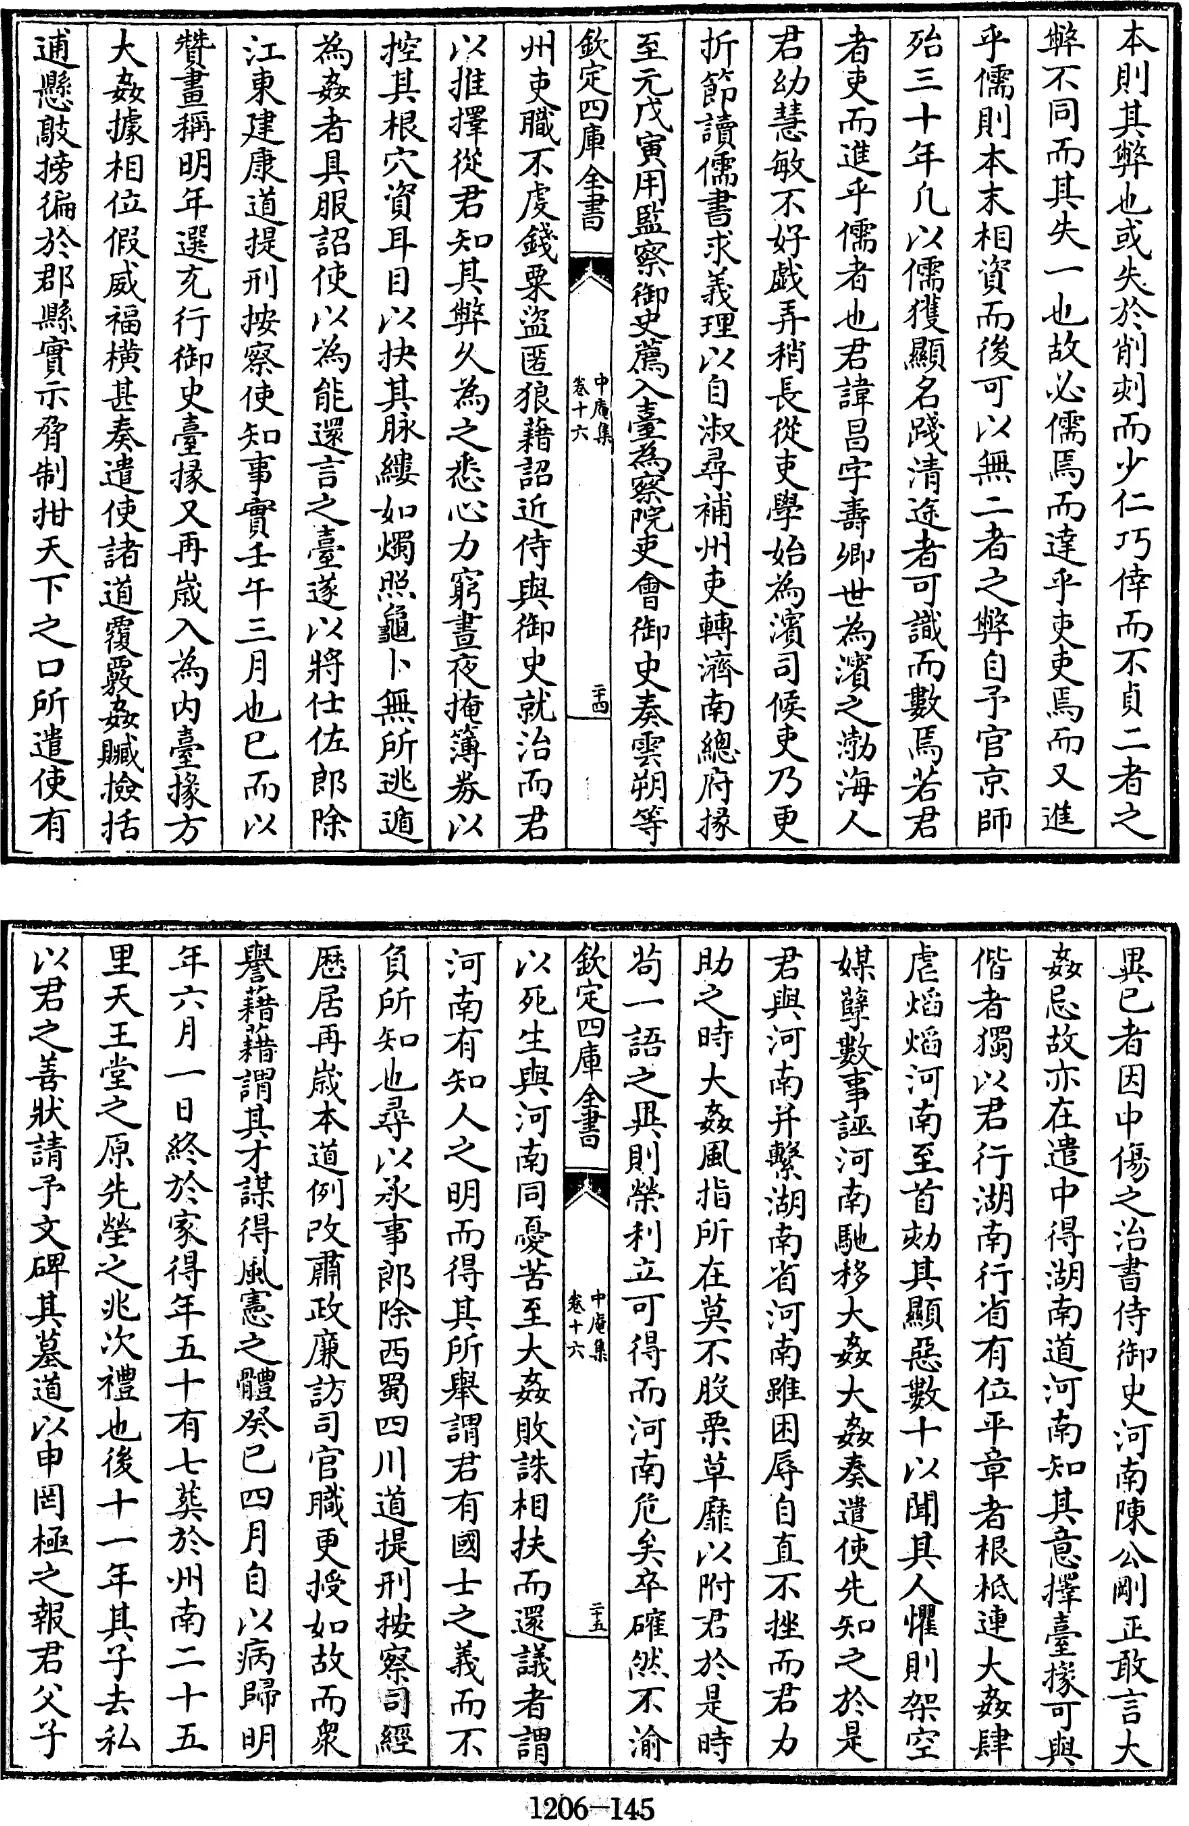 本則其弊也或失於削刻而少仁巧倖而不貞二者之
弊不同而其失一也故必儒焉而達乎吏吏焉而又進
乎儒則本末相資而後可以無二者之弊自予官京師
殆三十年凡以儒獲顯名踐清途者可識而數焉若君
者吏而進乎儒者也君諱昌字壽卿世為濱之渤海人
君幼慧敏不好戱弄稍長從吏學始為濱司候吏乃更
折節讀儒書求義理以自淑尋補州吏轉濟南總府掾
至元戊寅用監察御史薦入臺為察院吏會御史奏雲朔等
欽定四庫全書
中庵集
卷十六
二十四
州吏職不䖍錢粟盜匿狼藉詔近侍與御史就治而君
以推擇從君知其弊久為之悉心力窮晝夜掩簿券以
控其根穴資耳目以抉其脉縷如燭照龜卜無所逃遁
為姦者具服詔使以為能還言之臺遂以將仕佐郎除
江東建康道提刑按察使知事實壬午三月也已而以
贊畫稱明年選充行御史臺掾又再歲入為内臺掾方
大姦據相位假威福橫甚奏遣使諸道覆覈姦贓撿括
逋懸敲搒徧於郡縣實示脅制拑天下之口所遣使有
異已者因中傷之治書侍御史河南陳公剛正敢言大
姦忌故亦在遣中得湖南道河南知其意擇臺掾可與
偕者獨以君行湖南行省有位平章者根柢連大姦肆
虐熖熖河南至首劾其顯惡數十以聞其人懼則架空
媒孽數事誣河南馳移大姦大姦奏遣使先知之於是
君與河南并繫湖南省河南雖困辱自直不挫而君力
助之時大姦風指所在莫不股栗草靡以附君於是時
茍一語之異則榮利立可得而河南危矣卒確然不渝
欽定四庫全書
中庵集
卷十六
二十五
以死生與河南同憂苦至大姦敗誅相扶而還議者謂
河南有知人之明而得其所舉謂君有國士之義而不
負所知也尋以承事郎除西蜀四川道提刑按察司經
歴居再歲本道例改肅政廉訪司官職更授如故而衆
譽藉藉謂其才謀得風憲之體癸巳四月自以病歸明
年六月一日終於家得年五十有七葬於州南二十五
里天王堂之原先塋之兆次禮也後十一年其子去私
以君之善狀請予文碑其墓道以申罔極之報君父子
1206-145